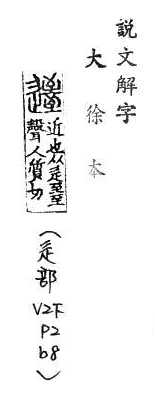 說文解字
大徐本
近也从辵臸
聲人質切
(辵部 V2下 P2 b8)